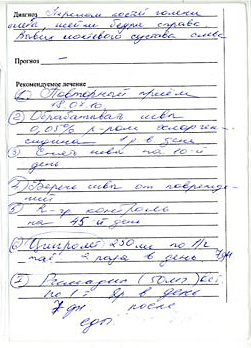 Диагноз Перелом костей голени
слева, шейки бедра справа.
Вывих локтевого сустава слева
Прогноз –
Рекомендуемое лечение
① Повторный приём
18.07.10
② Обрабатывать швы
0,05% р-ром хлоргек-
сидина 1 р в день
③ Снять швы на 10-й
день
④ Беречь швы от поврежде-
ний
⑤ К-г контроль
на 45-й день
⑥ 250 мг по 1т
2 раза в день 7дн
⑦ (50мг)
по 1т 2р в день
7 дн после
еды.